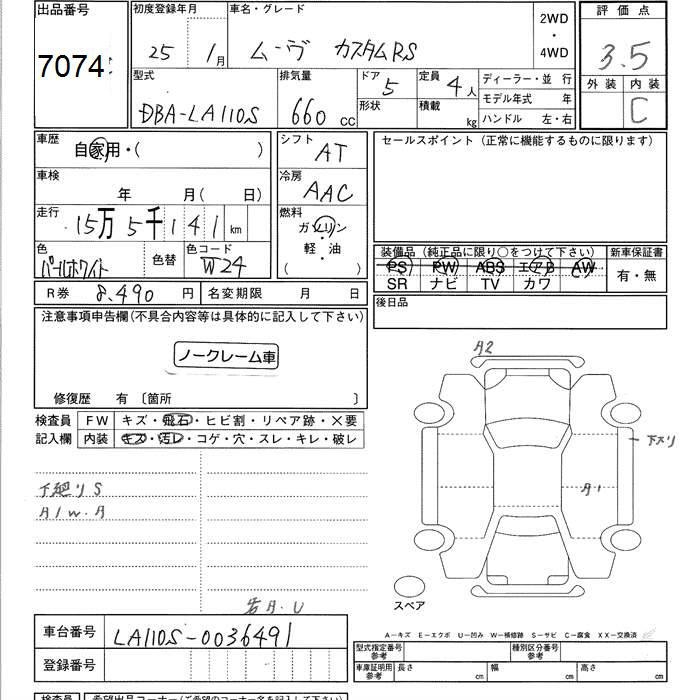 出品番号 初度登録年月 車名・グレード 評価点
7074 25年 1月 ムーヴ カスタムRS 2WD・4WD 3.5
型式 排気量 ドア 定員 ディーラー・並 行 外装 内装
DBA-LA110S 660cc 5 4人 モデル年式 年 C
形状 積載 kg ハンドル 左・右
車歴 自家用・( ) シフト AT セールスポイント (正常に機能するものに限ります)
車検 年 月( 日) 冷房 AAC
走行 15万5千141km 燃料 ガソリン
軽・油
( )
色 パールホワイト 色替 色コード W24
装備品 (純正品に限り○をつけて下さい) 新車保証書
PS PW ABS エアB AW 有・無
SR ナビ TV カワ
R券 8,490円 名変期限 月 日 後日品
注意事項申告欄(不具合内容等は具体的に記入して下さい)
ノークレーム車
修復歴 有 〔箇所 〕
検査員 FW キズ・飛石・ヒビ割・リペア跡・X要
記入欄 内装 キズ・汚レ・コゲ・穴・スレ・キレ・破レ
A2
下スリ
A1
下廻りS
A1W.A
U
スペア
車台番号 LA110S-0036491
登録番号
A-キズ E-エクボ U-凹み W-補修跡 S-サビ C-腐食 XX-交換済
型式指定番号 参考 種別区分番号 参考
車庫証明用 参考 長さ cm 幅 cm 高さ cm
検査員 希望出品コーナー(ご希望のコーナー名を記入して下さい)